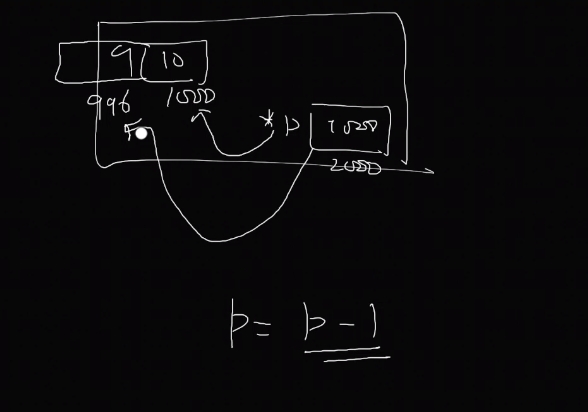 9 10
996 1000
*p 1000
2000
p = p - 1